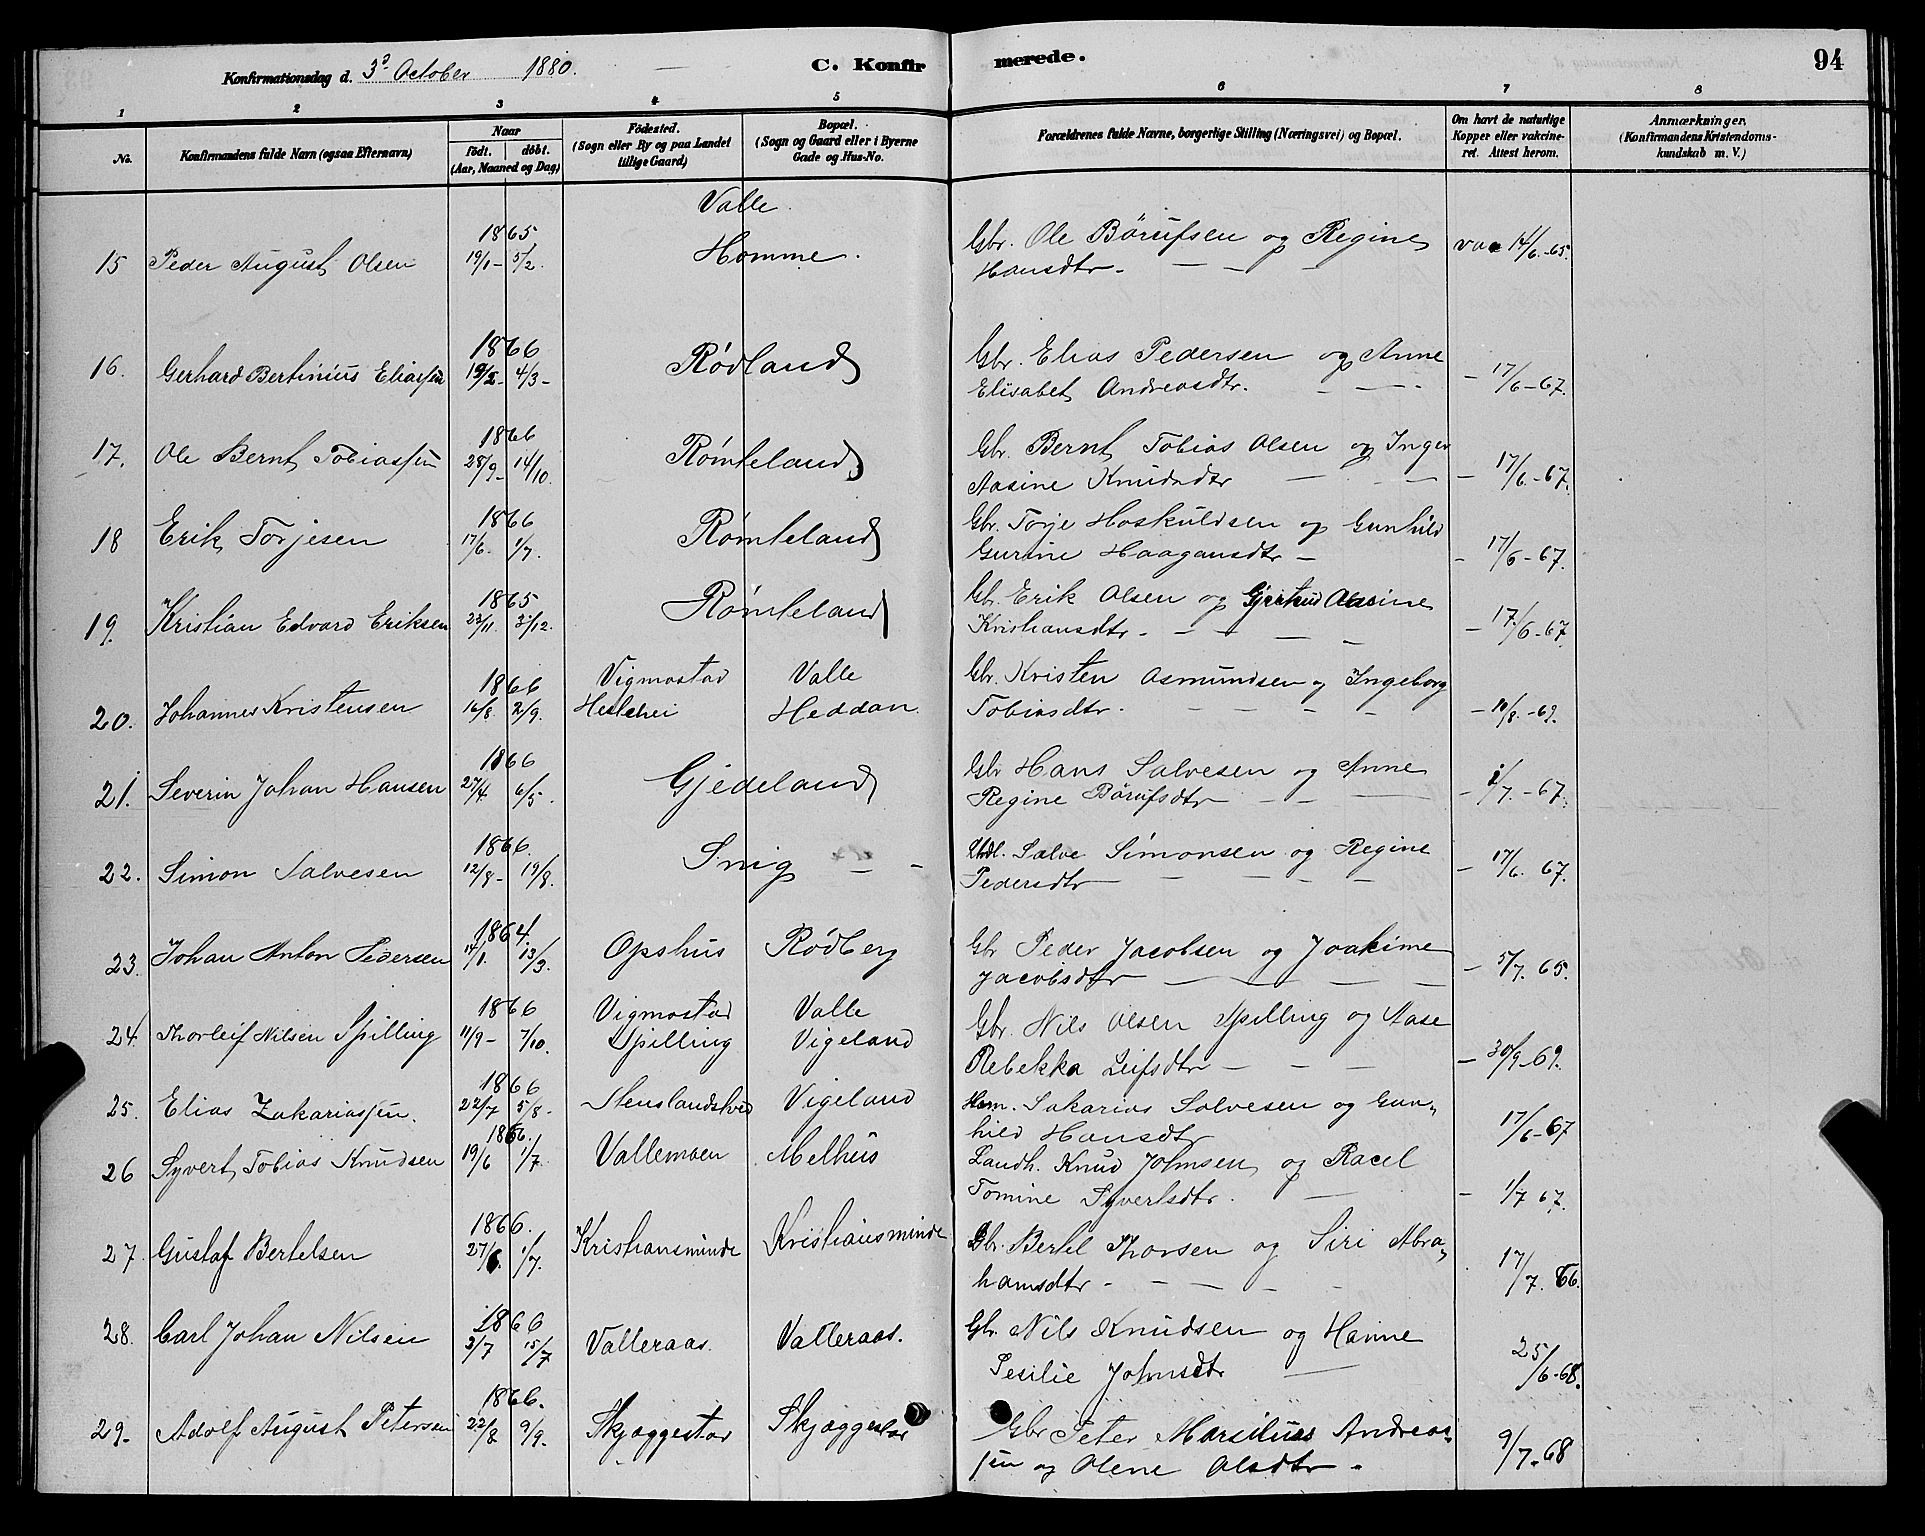 Konfirmationsdag d. 3d October 1880. C. Konfirmerede. 94
1 2 3 4 5 6 7 8
No. Konfirmandens fulde Navn (ogsaa Efternavn) Naar födt. döbt. (Aar, Maaned og Dag) Födested. (Sogn eller By og paa Landet tillige Gaard) Bopæl. (Sogn og Gaard eller i Byerne Gade og Hus-No. Forældrenes fulde Navne, borgerlige Stilling (Næringsvei) og Bopæl. Om havt de naturlige Kopper eller vakcineret. Attest herom. Anmærkninger. (Konfirmandens Kristendomskundskab m. V.)
Valle.
15 Peder August Olsen 1865 19/1 - 5/2. Homme. Gbr. Ole Börufsen og Regine
Hansdtr. vac 14/6-65.
16. Gerhard Bertinius Eliassen 1866 19/2 - 4/3 - Rødland Gbr. Elias Pedersen og Anne
Elisabet Andreasdtr. - 17/6-67.
17. Ole Bernt Tobiassen 1866 28/9 - 14/10. Rømteland Gbr. Bernt Tobias Olsen og Inger
Aasine Knudsdtr - 17/6-67.
18 Erik Torjesen 1866 17/6. 1/7. Rømteland Gbr. Torje Hoskuldsen og Gunhild
Gurine Haagansdtr - 17/6-67.
19. Kristian Edvard Eriksen 1865 23/11. 31/12. Rømteland Gb. Erik Olsen og Gjertrud Aasine
Kristiansdtr. - 17/6-67.
20. Johannes Kristensen 1866 16/8. 2/9. Vigmostad Hellehei Valle Heddan Gbr. Kristen Asmundsen og Ingeborg
Tobiasdtr. - 10/8-69.
21. Severin Johan Hansen 1866 27/4. 6/5. Gjedeland Gbr Hans Salvesen og Anne
Regine Börufsdtr - 1/7-67.
22. Simon Salvesen 1866. 12/8 - 19/8. Snig Salve Simonsen og Regine
Pedersdtr - 17/6. 67.
23. Johan Anton Pedersen 1864 14/1. 13/3. Opshus Rödberg Gbr Peder Jacobsen og Joakime
Jacobsdtr - 5/7. 65.
24. Thorleif Nilsen Spilling 1866 11/9 - 7/10. Vigmostad Spilling Valle Vigeland Gbr. Nils Olsen Spilling og Aase
Rebekka Leifsdtr - 30/9-69.
25. Elias Zakariassen. 1866 22/7 5/8. Stenslandskved Vigeland Hsm. Sakarias Salvesen og Gun-
hild Hansdtr 17/6-67
26 Syvert Tobias Knudsen 1866. 19/6 1/7. Vallemoen Melhus Landh. Knud Johnsen og Racel
Tomine Syvertsdtr. - 1/7 67.
27. Gustaf Bertelsen 1866. 27/6. 1/7. Kristiansminde Kristiansminde Gbr. Bertel Thorsen og Siri Abra-
hamsdtr - 17/7. 66.
28. Carl Johan Nilsen 1866 3/7 15/7 Valleraas. Valleraas. Gbr. Nils Knudsen og Hanne
Sesilie Johnsdtr 25/6-68.
29. Adolf August Petersen 1866. 22/8 9/9. Skjæggestad Skjæggestad Gbr Peter Marsilius Andreas-
sen og Olene Olsdtr. 9/7-68